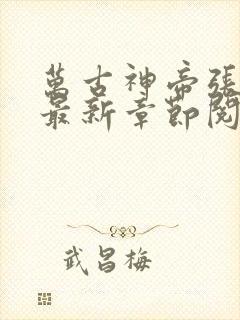 萬古神帝張
最新章節閱
武昌梅